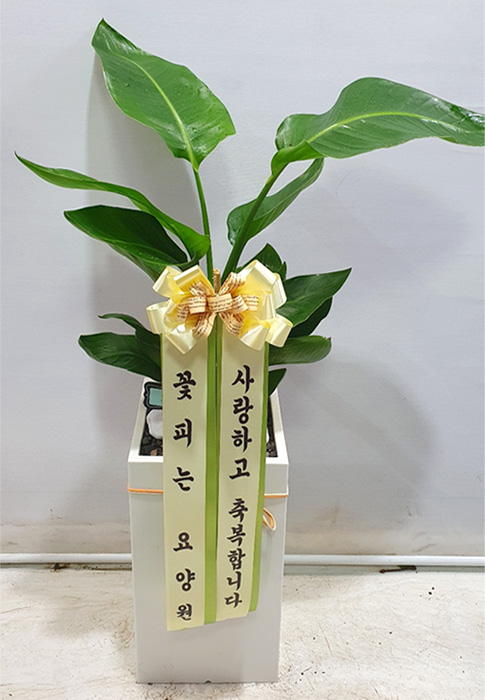 꽃피는 요양원
사랑하고 축복합니다